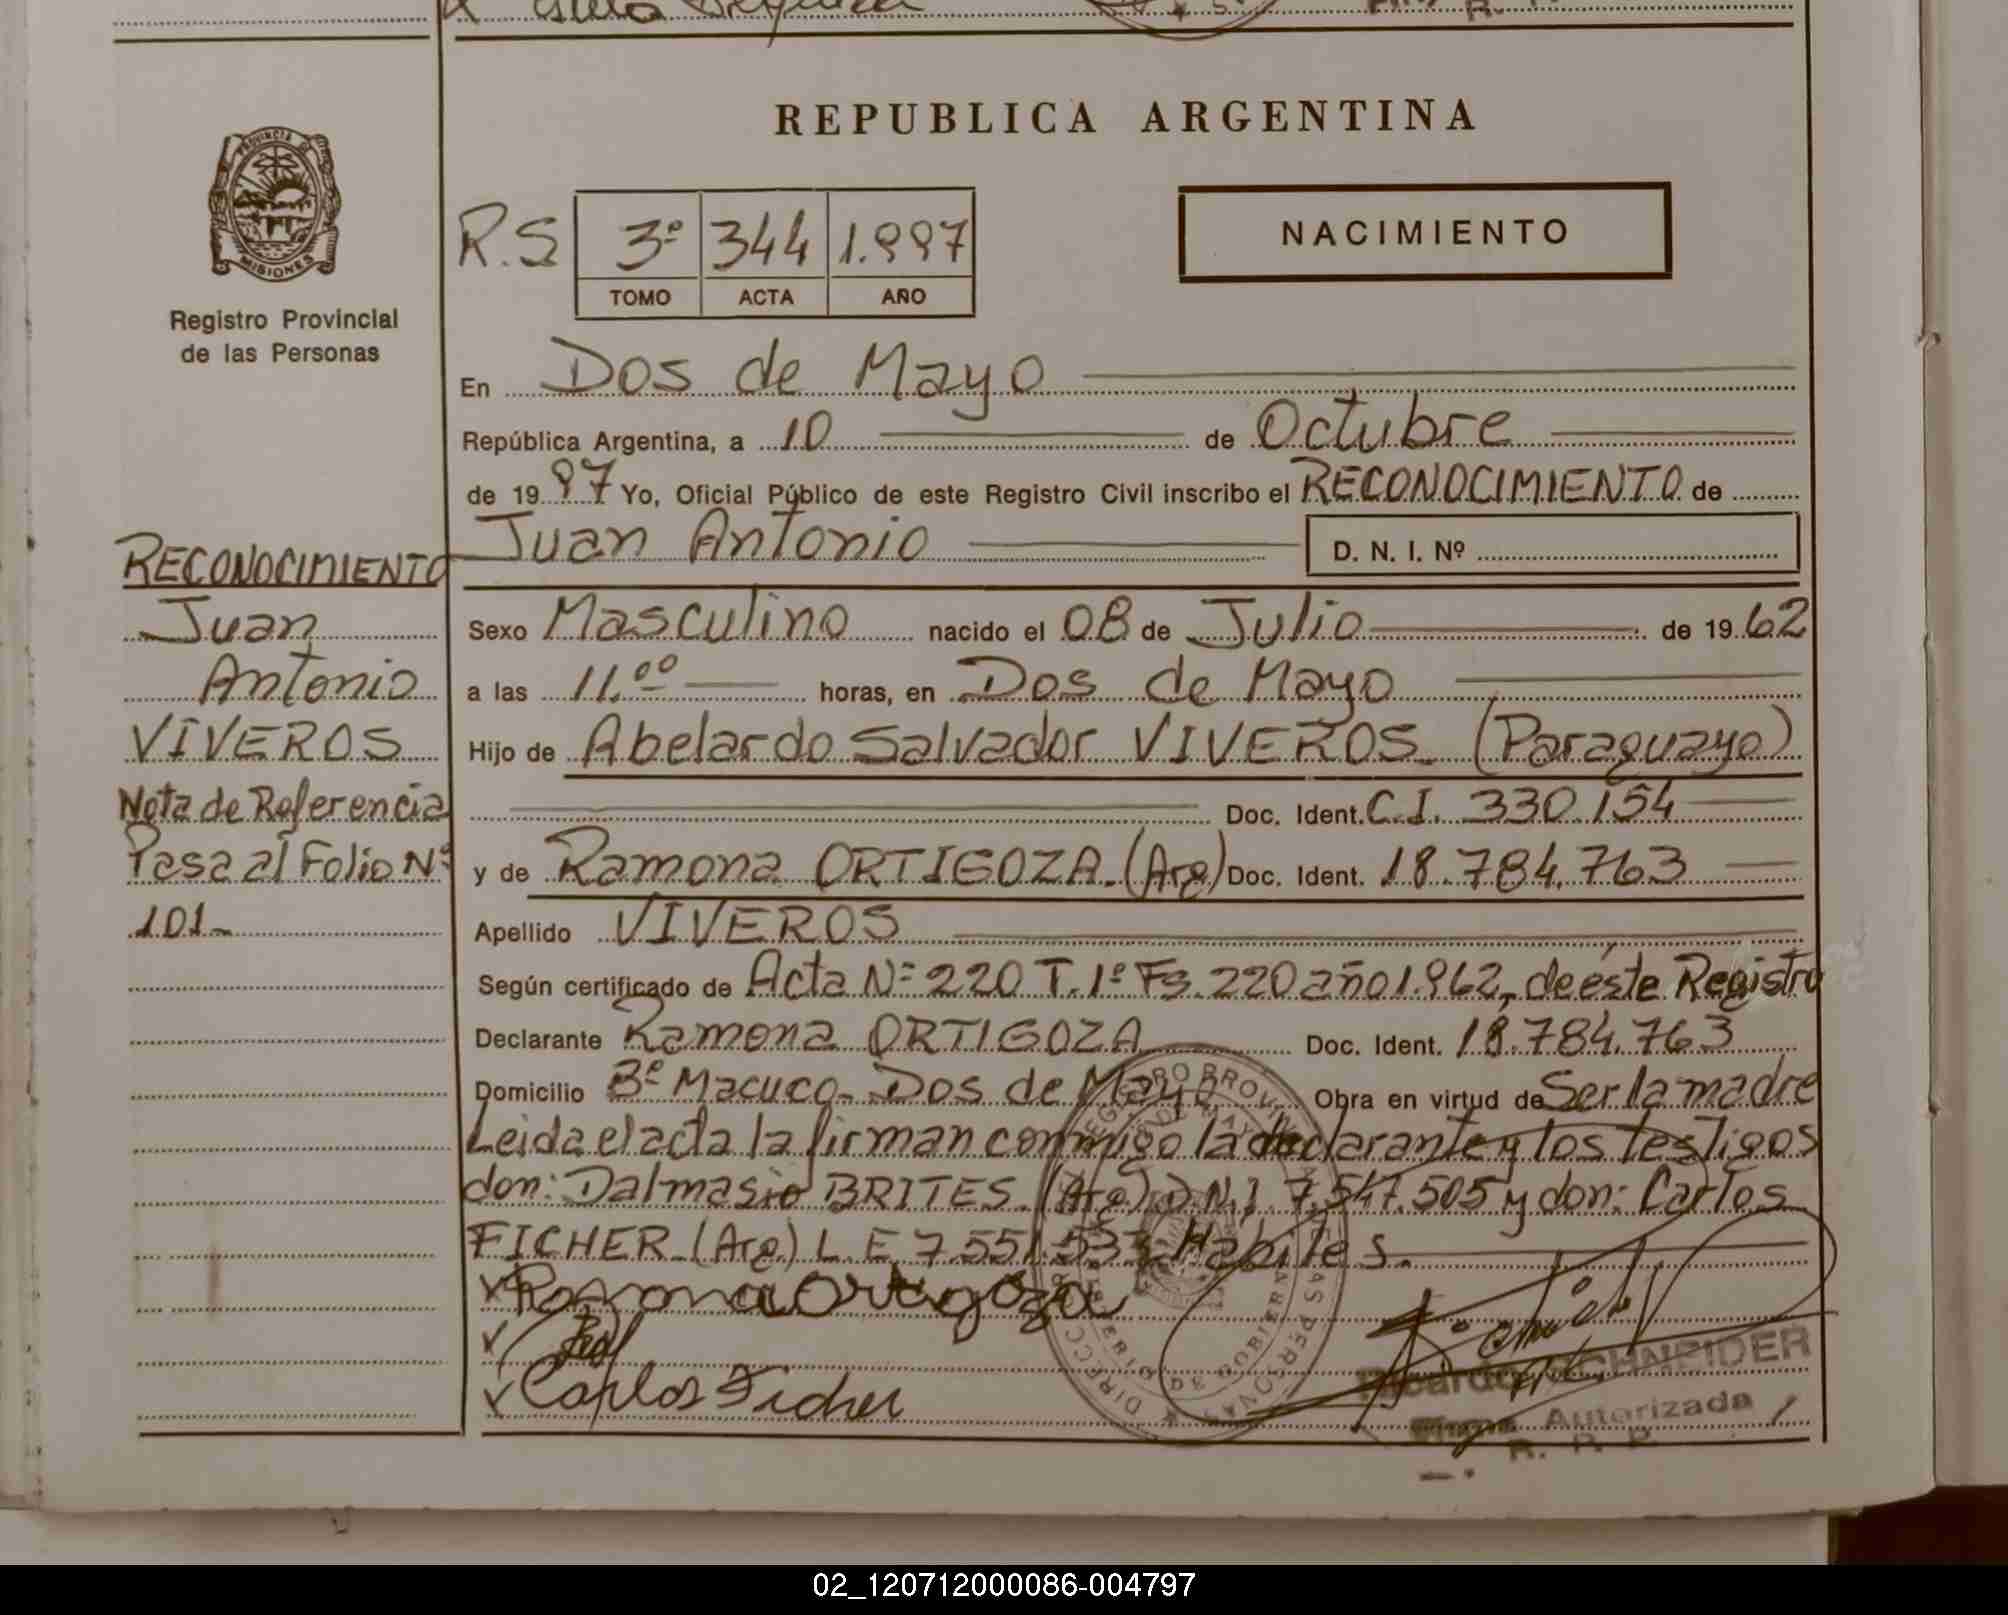 REPUBLICA ARGENTINA
PROVINCIA DE
MISIONES
Registro Provincial
de las Personas
R.S 3º 344 1.997
TOMO ACTA AÑO
NACIMIENTO
En Dos de Mayo
República Argentina, a 10 de Octubre
de 1997 Yo, Oficial Público de este Registro Civil inscribo el RECONOCIMIENTO de
Juan Antonio D. N. I. Nº
RECONOCIMIENTO
Juan
Antonio
VIVEROS
Nota de Referencia
Pasa al Folio Nº
101-
Sexo Masculino nacido el 08 de Julio de 1962
a las 11.ºº horas, en Dos de Mayo
Hijo de Abelardo Salvador VIVEROS (Paraguayo)
Doc. Ident. C.I. 330.154
y de Ramona ORTIGOZA.(Arg) Doc. Ident. 18.784.763
Apellido VIVEROS
Según certificado de Acta Nº 220 T.1º Fs.220 año 1.962, de éste Registro
Declarante Ramona ORTIGOZA Doc. Ident. 18.784.763
Domicilio Bº Macuco- Dos de Mayo Obra en virtud de Ser la madre
Leida el acta la firman conmigo la declarante y los testigos
don: Dalmasio BRITES (Arg) D.N.I. 7.547.505 y don: Carlos
FICHER (Arg) L.E 7.551.533 Habiles.
Ramona Ortigoza
Carlos Ficher
Ricardo SCHNEIDER
Firma Autorizada
R. P. P.
02_120712000086-004797